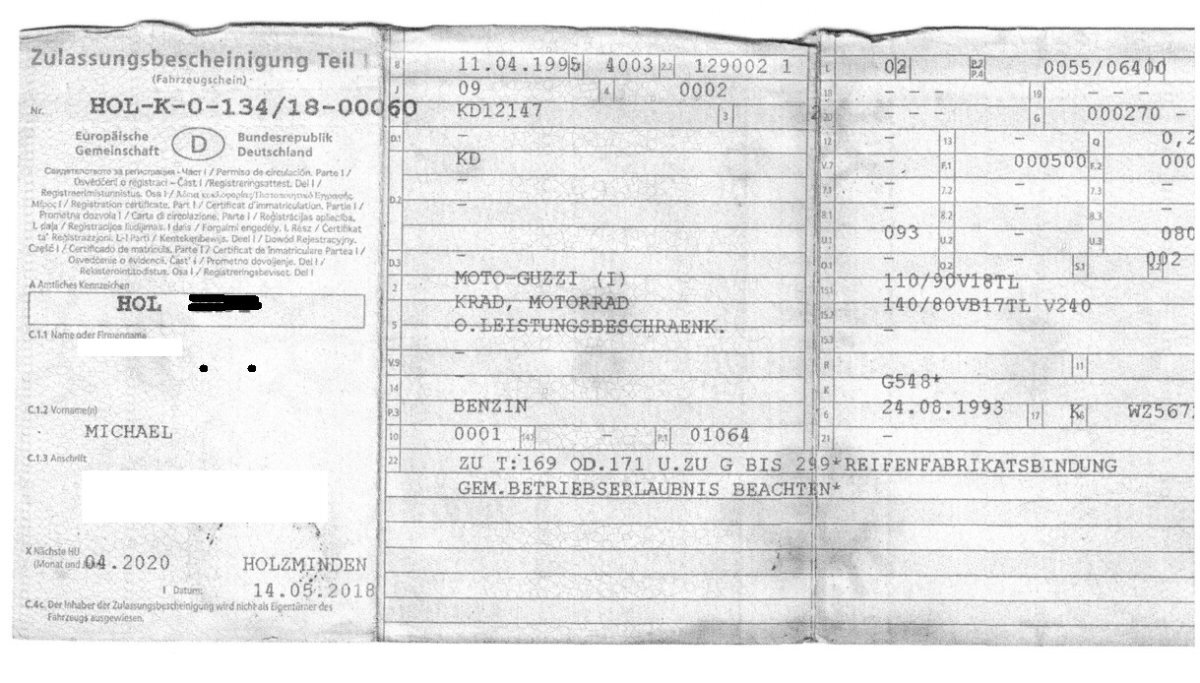 Zulassungsbescheinigung Teil I
(Fahrzeugschein)
Nr. HOL-K-0-134/18-00060
Europäische Gemeinschaft D Bundesrepublik Deutschland
Свидетелство за регистрация - Част I / Permiso de circulación. Parte I /
Osvědčení o registraci – Část I / Registreringsattest. Del I /
Registreerimistunnistus. Osa I / Άδεια κυκλοφορίας/Πιστοποιητικό Εγγραφής
Μέρος I / Registration certificate. Part I / Certificat d'immatriculation. Partie I /
Prometna dozvola I / Carta di circolazione. Parte I / Reģistrācijas apliecība.
I. daļa / Registracijos liudijimas. I dalis / Forgalmi engedély. I. Rész / Ċertifikat
ta' Reġistrazzjoni. L-I Parti / Kentekenbewijs. Deel I / Dowód Rejestracyjny.
Część I / Certificado de matrícula. Parte I / Certificat de înmatriculare Partea I /
Osvedčenie o evidencii. Časť I / Prometno dovoljenje. Del I /
Rekisteröintitodistus. Osa I / Registreringsbeviset. Del I
A Amtliches Kennzeichen
HOL
C.1.1 Name oder Firmenname
C.1.2 Vorname(n)
MICHAEL
C.1.3 Anschrift
X Nächste HU
(Monat und 04.2020 HOLZMINDEN
I Datum: 14.05.2018
C.4c Der Inhaber der Zulassungsbescheinigung wird nicht als Eigentümer des
Fahrzeugs ausgewiesen.
B 11.04.1995 4003 2.2 129002 1
J 09 4 0002
KD12147 3 2
D.1 –
KD
D.2 –
D.3 –
2 MOTO-GUZZI (I)
KRAD, MOTORRAD
5 O.LEISTUNGSBESCHRAENK.
V.9 –
14 –
P.3 BENZIN
10 0001 14.1 – P.1 01064
22 ZU T:169 OD.171 U.ZU G BIS 299*REIFENFABRIKATSBINDUNG
GEM.BETRIEBSERLAUBNIS BEACHTEN*
L 02 P.2 P.4 0055/06400
18 – – – 19 – – –
20 – – – G 000270 –
12 – 13 – Q 0,2
V.7 – F.1 000500 F.2 000
7.1 – 7.2 – 7.3 –
8.1 – 8.2 – 8.3 –
U.1 093 U.2 – U.3 080
O.1 – O.2 – S.1 002 S.2
15.1 110/90V18TL
15.2 140/80VB17TL V240
15.3 –
R – 11
K G548*
6 24.08.1993 17 K 16 WZ567
21 –